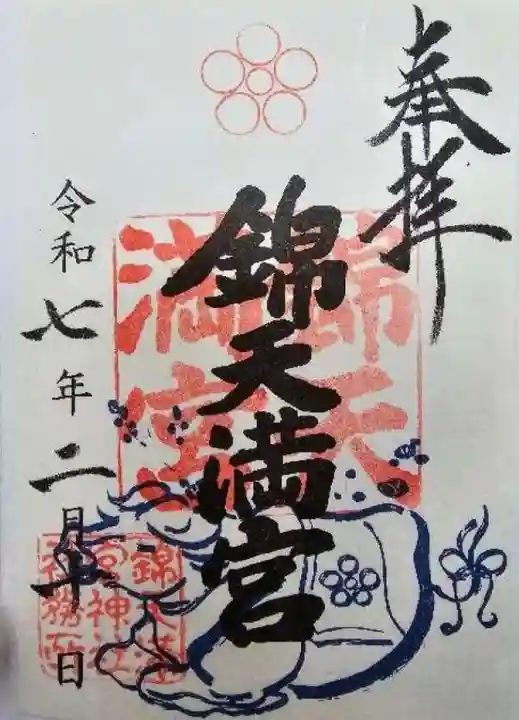 奉拝
錦天満宮
錦天
満宮
令和七年二月 日
錦天満
宮神社
社務所